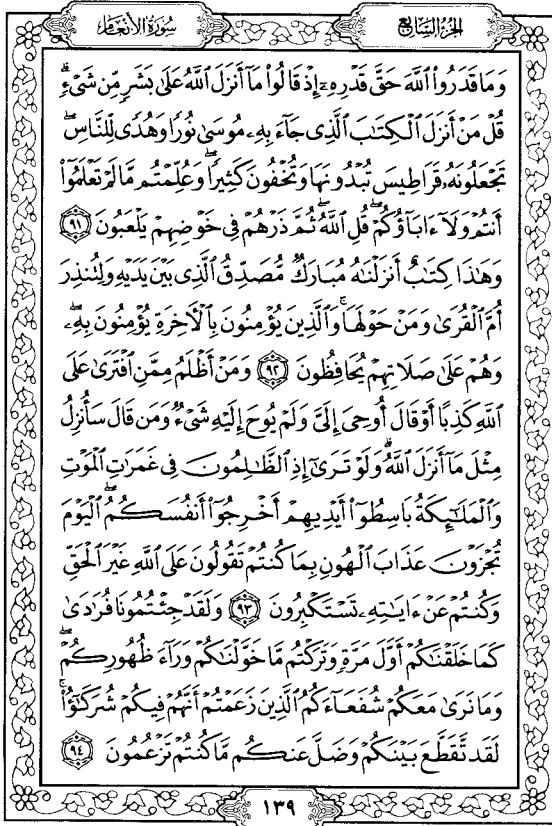 سُورَةُ الأَنْعَامِ
الجُزْءُ السَّابِعُ
وَمَا قَدَرُوا۟ ٱللَّهَ حَقَّ قَدْرِهِۦٓ إِذْ قَالُوا۟ مَآ أَنزَلَ ٱللَّهُ عَلَىٰ بَشَرٍ مِّن شَىْءٍۗ
قُلْ مَنْ أَنزَلَ ٱلْكِتَـٰبَ ٱلَّذِى جَآءَ بِهِۦ مُوسَىٰ نُورًا وَهُدًى لِّلنَّاسِۖ
تَجْعَلُونَهُۥ قَرَاطِيسَ تُبْدُونَهَا وَتُخْفُونَ كَثِيرًاۖ وَعُلِّمْتُم مَّا لَمْ تَعْلَمُوٓا۟
أَنتُمْ وَلَآ ءَابَآؤُكُمْۖ قُلِ ٱللَّهُۖ ثُمَّ ذَرْهُمْ فِى خَوْضِهِمْ يَلْعَبُونَ ٩١
وَهَـٰذَا كِتَـٰبٌ أَنزَلْنَـٰهُ مُبَارَكٌ مُّصَدِّقُ ٱلَّذِى بَيْنَ يَدَيْهِ وَلِتُنذِرَ
أُمَّ ٱلْقُرَىٰ وَمَنْ حَوْلَهَاۚ وَٱلَّذِينَ يُؤْمِنُونَ بِٱلْـَٔاخِرَةِ يُؤْمِنُونَ بِهِۦۖ
وَهُمْ عَلَىٰ صَلَاتِهِمْ يُحَافِظُونَ ٩٢ وَمَنْ أَظْلَمُ مِمَّنِ ٱفْتَرَىٰ عَلَى
ٱللَّهِ كَذِبًا أَوْ قَالَ أُوحِىَ إِلَىَّ وَلَمْ يُوحَ إِلَيْهِ شَىْءٌ وَمَن قَالَ سَأُنزِلُ
مِثْلَ مَآ أَنزَلَ ٱللَّهُۗ وَلَوْ تَرَىٰٓ إِذِ ٱلظَّـٰلِمُونَ فِى غَمَرَٰتِ ٱلْمَوْتِ
وَٱلْمَلَـٰٓئِكَةُ بَاسِطُوٓا۟ أَيْدِيهِمْ أَخْرِجُوٓا۟ أَنفُسَكُمُۖ ٱلْيَوْمَ
تُجْزَوْنَ عَذَابَ ٱلْهُونِ بِمَا كُنتُمْ تَقُولُونَ عَلَى ٱللَّهِ غَيْرَ ٱلْحَقِّ
وَكُنتُمْ عَنْ ءَايَـٰتِهِۦ تَسْتَكْبِرُونَ ٩٣ وَلَقَدْ جِئْتُمُونَا فُرَٰدَىٰ
كَمَا خَلَقْنَـٰكُمْ أَوَّلَ مَرَّةٍ وَتَرَكْتُم مَّا خَوَّلْنَـٰكُمْ وَرَآءَ ظُهُورِكُمْۖ
وَمَا نَرَىٰ مَعَكُمْ شُفَعَآءَكُمُ ٱلَّذِينَ زَعَمْتُمْ أَنَّهُمْ فِيكُمْ شُرَكَـٰٓؤُا۟ۚ
لَقَد تَّقَطَّعَ بَيْنَكُمْ وَضَلَّ عَنكُم مَّا كُنتُمْ تَزْعُمُونَ ٩٤
١٣٩